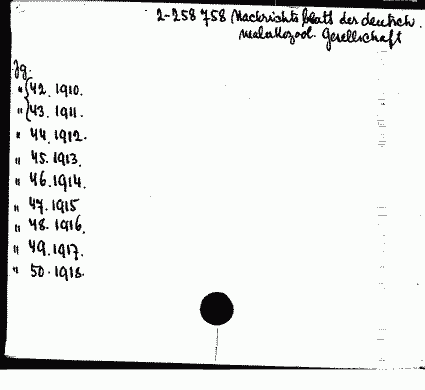 2-258 758 Nachrichtsblatt der deutsch.
malakozool. Gesellschaft
Jg.
" { 42. 1910.
" { 43. 1911.
" 44. 1912.
" 45. 1913.
" 46. 1914.
" 47. 1915
" 48. 1916.
" 49. 1917.
" 50. 1918.